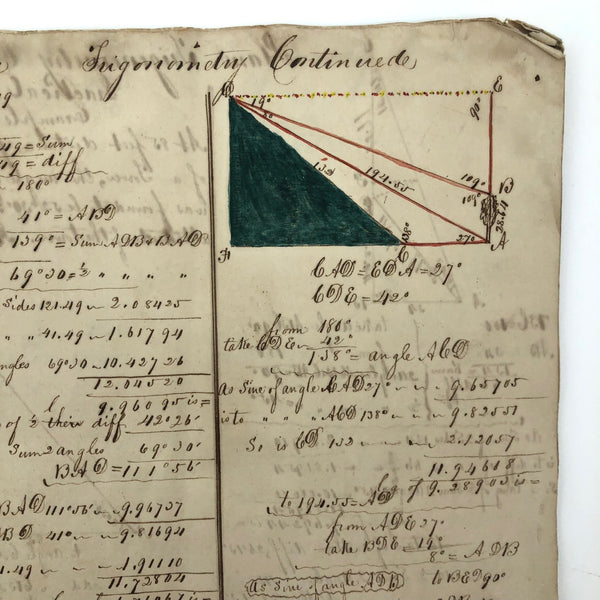 Trigonometry Continued
49 = Sum
49 = diff
180°
41° = ABD
139° = Sum ADB & BAD
69°30 = ½ " " "
Sides 121.49 ~ 2.08425
" " 41.49 ~ 1.61794
angles 69°30 ~ 10.42726
12.04520
9.96095 is =
of ½ their diff 42°26'
Sum 2 angles 69°30'
BAD = 111°56'
BAD 111°56' ~ 9.96737
BD 41° ~ 9.81694
1.49 ~ ~ 1.91110
11.72804
D
E
19°
90°
132
194.55
109°
109°
B
28.64
F
C
138°
27°
A
CAD = EDA = 27°
CDE = 42°
from 180°
take CDE ~ 42°
138° = angle ACD
As Sine of angle CAD 27° ~ ~ 9.65705
is to " " " ACD 138° ~ ~ 9.82551
So is CD 132 ~ ~ ~ 2.12057
11.94618
log of 9.28903 is =
to 194.55 = AD
from ADE 27°
take BDE = 19°
8° = ADB
As Sine of angle ADB
to BED 90°